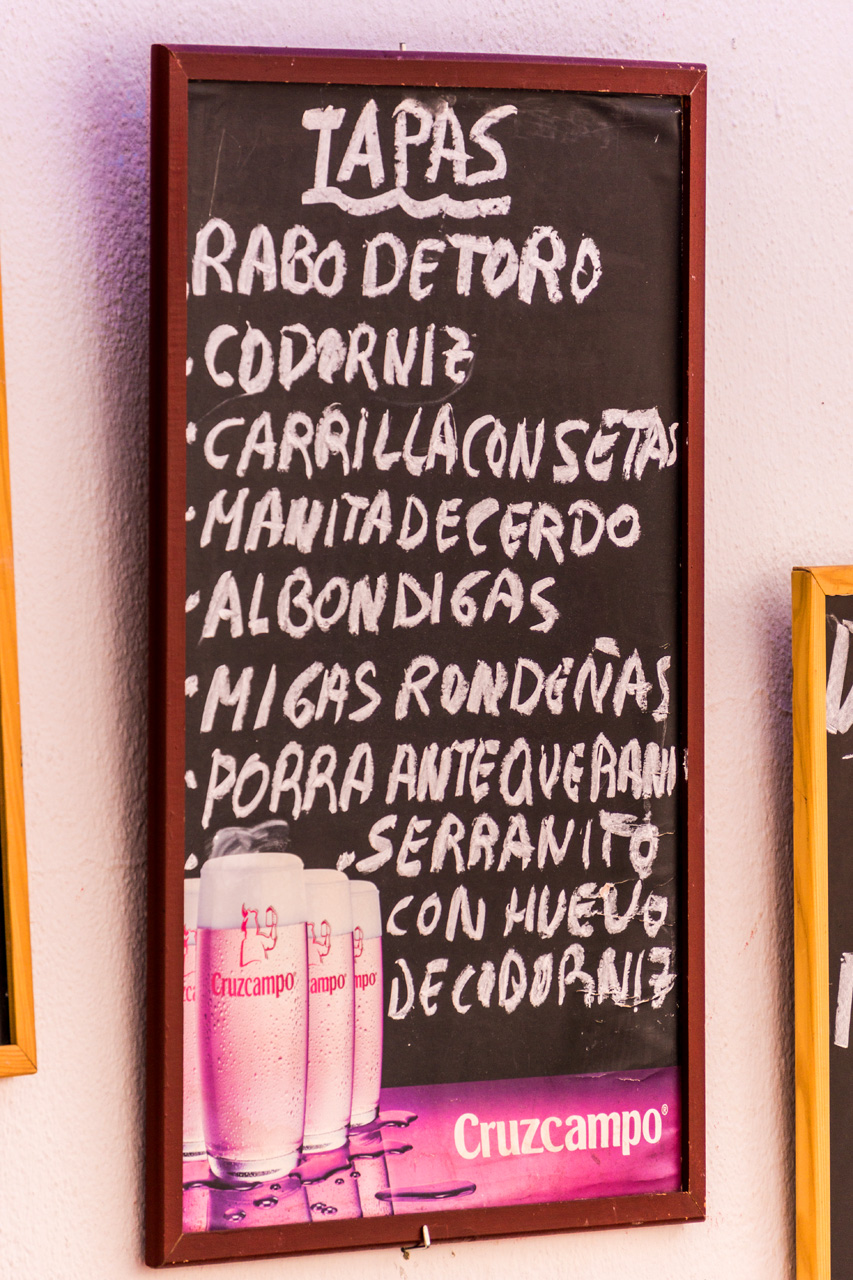 TAPAS
. RABO DE TORO
. CODORNIZ
. CARRILLA CON SETAS
. MANITA DE CERDO
. ALBONDIGAS
. MIGAS RONDEÑAS
. PORRA ANTEQUERANA
. SERRANITO
CON HUEVO
DE CODORNIZ
Cruzcampo
ampo
mpo
Cruzcampo®